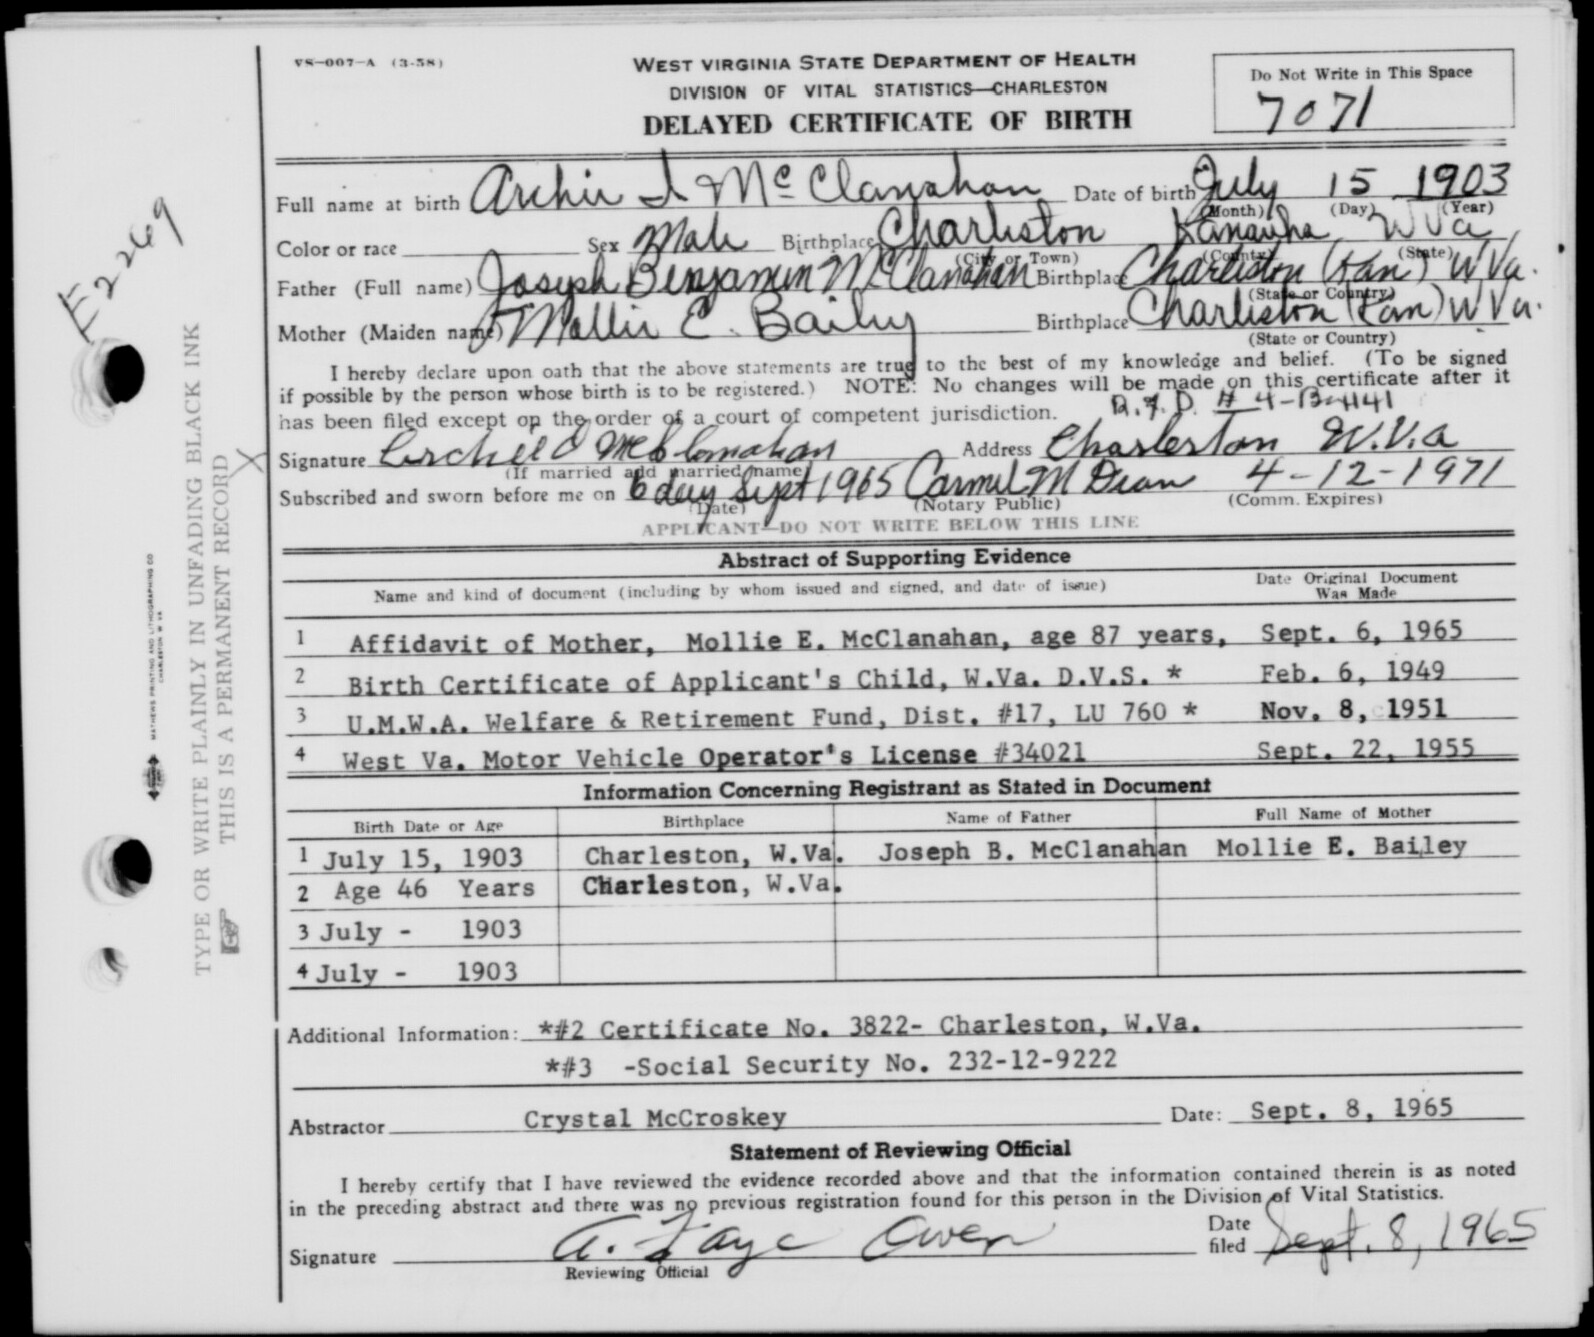 VS-007-A (3-58)
WEST VIRGINIA STATE DEPARTMENT OF HEALTH
DIVISION OF VITAL STATISTICS—CHARLESTON
DELAYED CERTIFICATE OF BIRTH
Do Not Write in This Space
7071
E2269
Full name at birth Archie I McClanahan Date of birth July 15 1903
(Month) (Day) (Year)
Color or race Sex Male Birthplace Charleston Kanawha W Va
(City or Town) (County) (State)
Father (Full name) Joseph Benjamin McClanahan Birthplace Charleston (Kan) W Va.
(State or Country)
Mother (Maiden name) Mollie E. Bailey Birthplace Charleston (Kan) W Va.
(State or Country)
I hereby declare upon oath that the above statements are true to the best of my knowledge and belief. (To be signed
if possible by the person whose birth is to be registered.) NOTE: No changes will be made on this certificate after it
has been filed except on the order of a court of competent jurisdiction. R.F.D. # 4-B-441
Signature Archie McClanahan Address Charleston W.Va
(If married add married name)
Subscribed and sworn before me on 6 day Sept 1965 Carmel M Dean 4-12-1971
(Date) (Notary Public) (Comm. Expires)
APPLICANT—DO NOT WRITE BELOW THIS LINE
Abstract of Supporting Evidence
Name and kind of document (including by whom issued and signed, and date of issue) Date Original Document
Was Made
1 Affidavit of Mother, Mollie E. McClanahan, age 87 years, Sept. 6, 1965
2 Birth Certificate of Applicant's Child, W.Va. D.V.S. * Feb. 6, 1949
3 U.M.W.A. Welfare & Retirement Fund, Dist. #17, LU 760 * Nov. 8, 1951
4 West Va. Motor Vehicle Operator's License #34021 Sept. 22, 1955
Information Concerning Registrant as Stated in Document
Birth Date or Age Birthplace Name of Father Full Name of Mother
1 July 15, 1903 Charleston, W.Va. Joseph B. McClanahan Mollie E. Bailey
2 Age 46 Years Charleston, W.Va.
3 July - 1903
4 July - 1903
Additional Information: *#2 Certificate No. 3822- Charleston, W.Va.
*#3 -Social Security No. 232-12-9222
Abstractor Crystal McCroskey Date: Sept. 8, 1965
Statement of Reviewing Official
I hereby certify that I have reviewed the evidence recorded above and that the information contained therein is as noted
in the preceding abstract and there was no previous registration found for this person in the Division of Vital Statistics.
Signature A. Faye Owen Date filed Sept. 8, 1965
Reviewing Official
TYPE OR WRITE PLAINLY IN UNFADING BLACK INK
THIS IS A PERMANENT RECORD X
MATHEWS PRINTING AND LITHOGRAPHING CO
CHARLESTON W VA